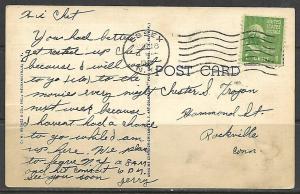 Hi Chet
You had better
get rested up Chet
because I will want
to go (etc) to the
movies every night
next week because
I havent had a chance
to go while I am
not here. We plan
to leave N.Y. at 8 A.M.
and hit Connect 6 P.M.
See you soon
Jerry
ESSEX
POST CARD
Chester S. Trojan
Hammond St.
Rockville
Conn